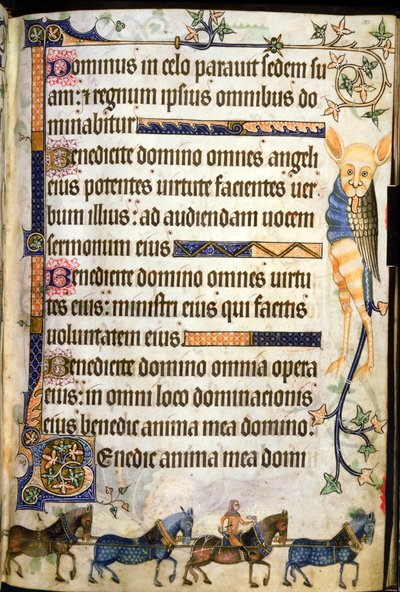 Dominus in celo parauit sedem su
am: ⁊ regnum ipsius omnibus do
minabitur
Benedicite domino omnes angeli
eius potentes uirtute facientes uer
bum illius: ad audiendam uocem
sermonum eius
Benedicite domino omnes uirtu
tes eius: ministri eius qui facitis
uoluntatem eius
Benedicite domino omnia opera
eius: in omni loco dominacionis
eius benedic anima mea domino:
Benedic anima mea domi